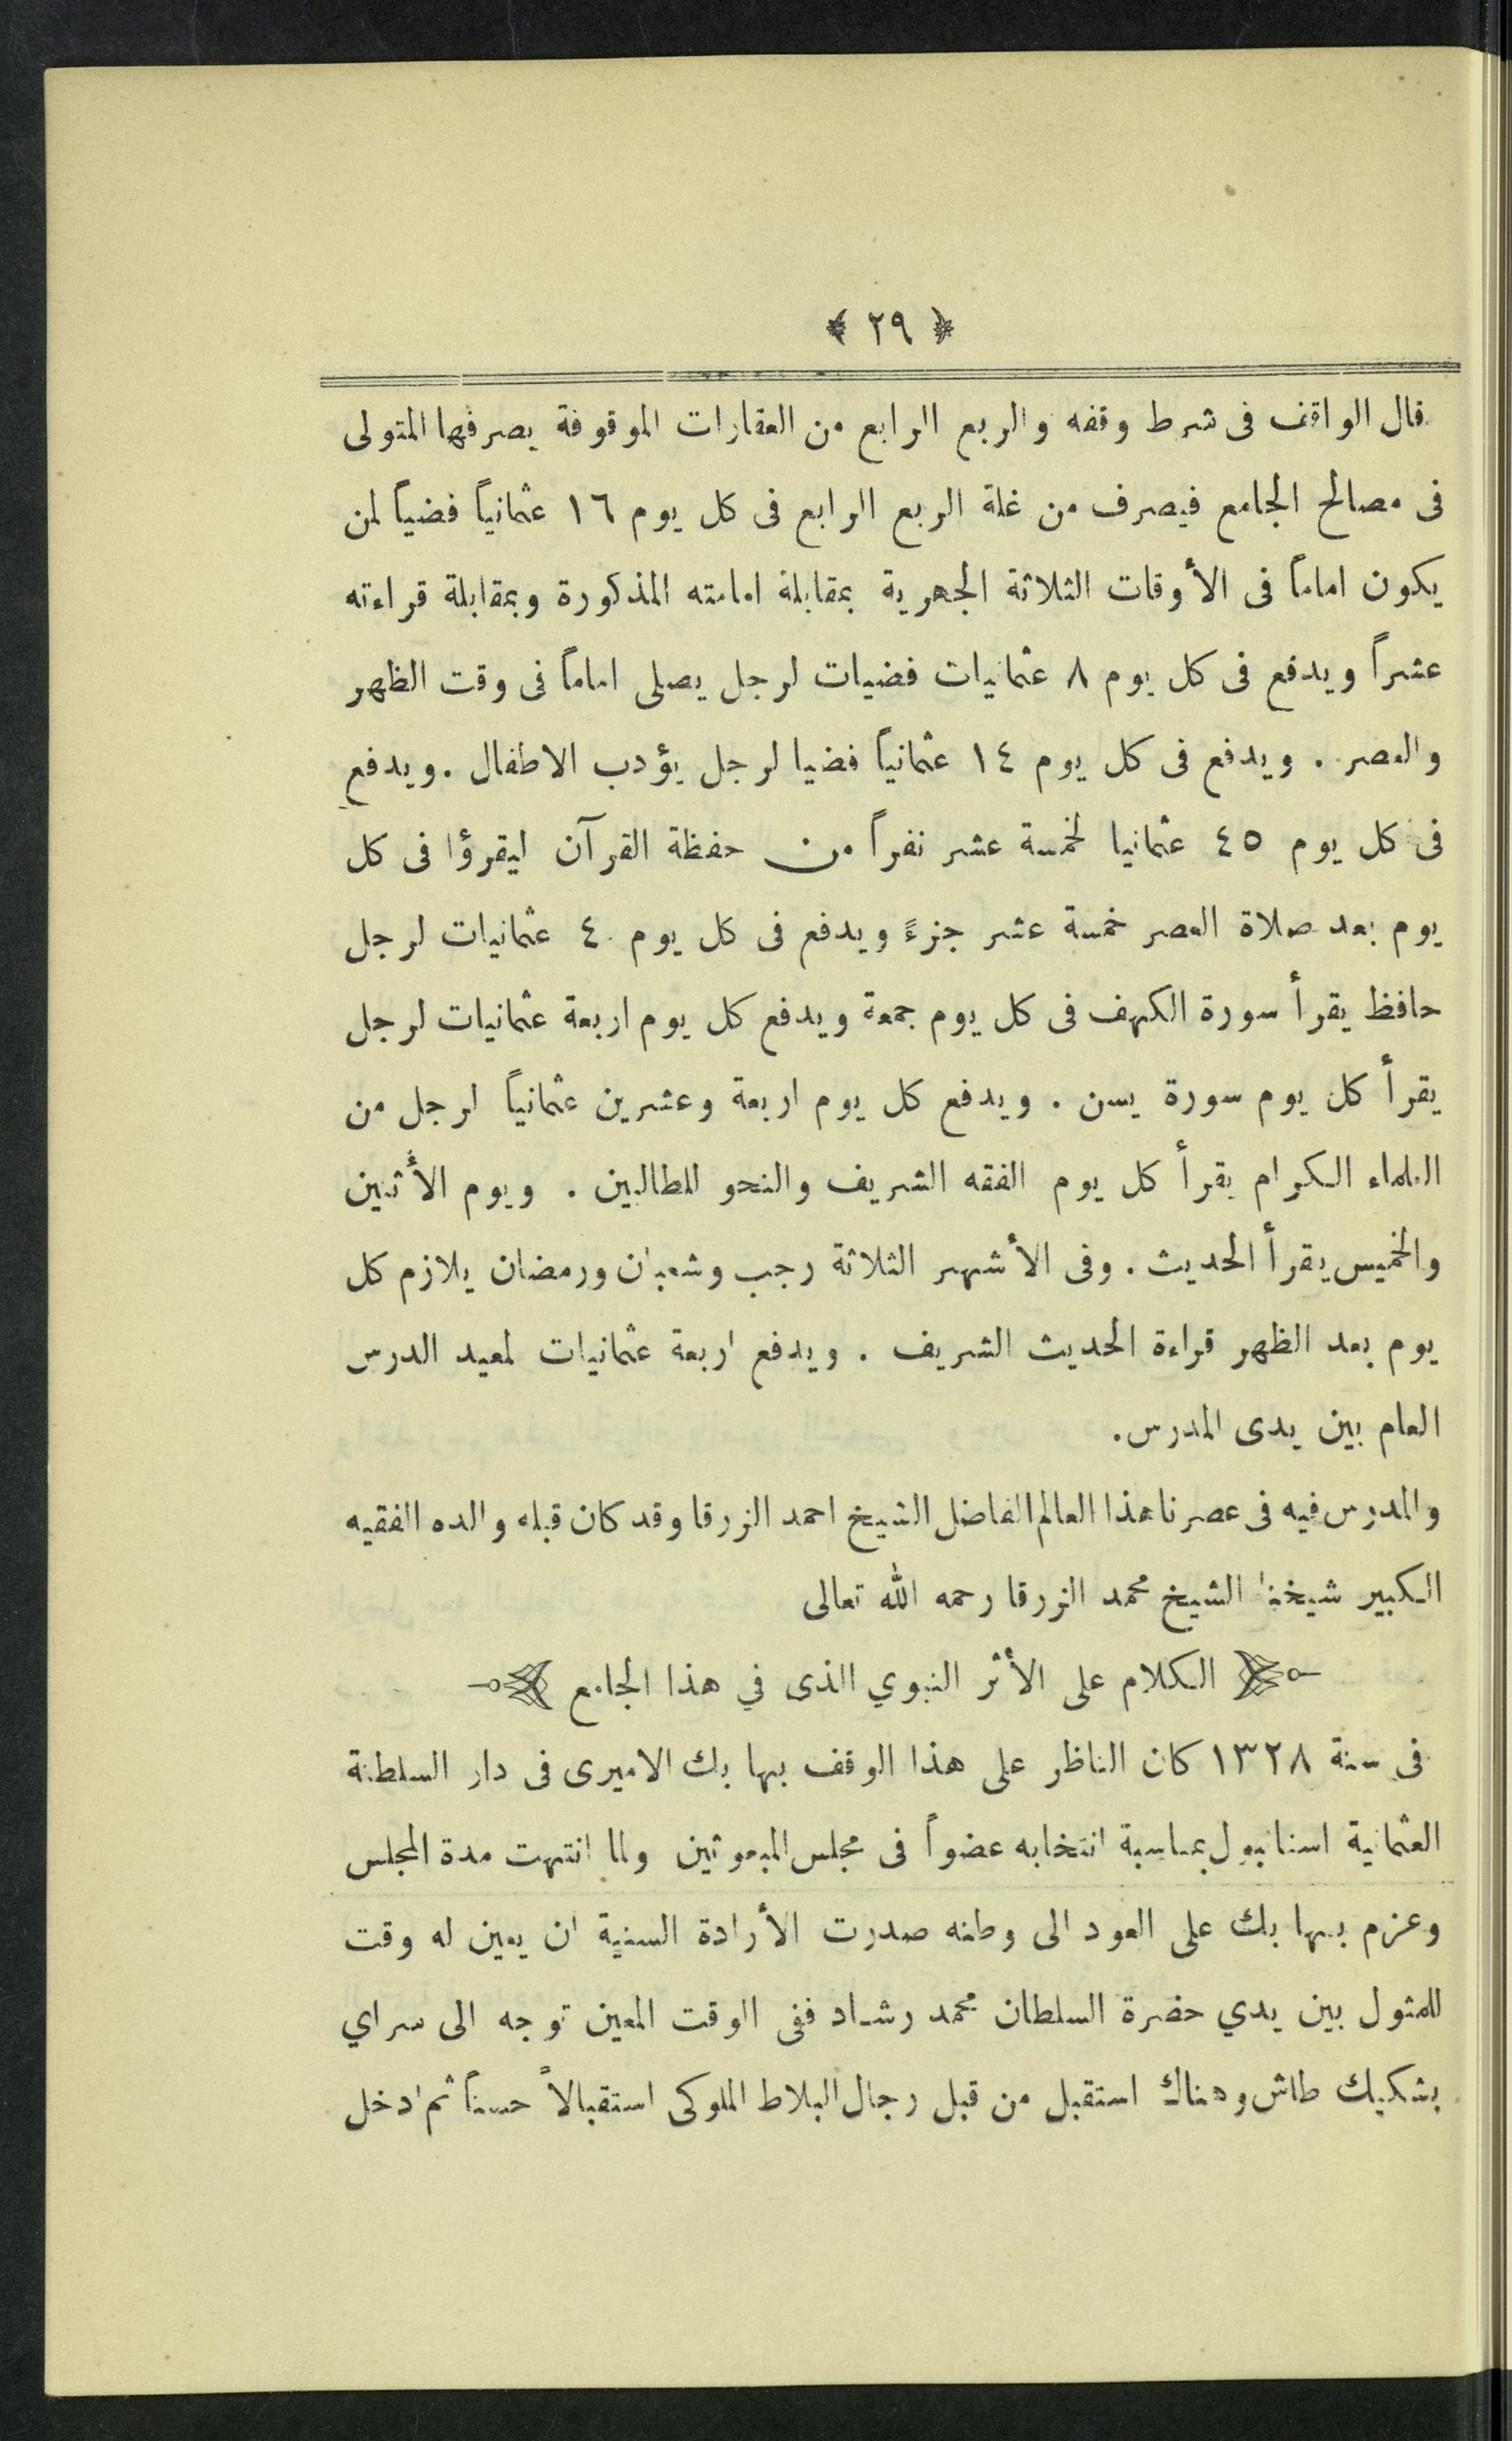 ﴿ ٢٩ ﴾
قال الواقف فى شرط وقفه والربع الرابع من العقارات الموقوفة يصرفها المتولى
فى مصالح الجامع فيصرف من غلة الربع الرابع فى كل يوم ١٦ عثمانياً فضياً لمن
يكون اماماً فى الأوقات الثلاثة الجهرية بمقابلة امامته المذكورة وبمقابلة قراءته
عشراً ويدفع فى كل يوم ٨ عثمانيات فضيات لرجل يصلى اماماً فى وقت الظهر
والعصر . ويدفع فى كل يوم ١٤ عثمانياً فضيا لرجل يؤدب الاطفال . ويدفع
فى كل يوم ٤٥ عثمانيا لخمسة عشر نفراً من حفظة القرآن ليقرؤا فى كل
يوم بعد صلاة العصر خمسة عشر جزءً ويدفع فى كل يوم ٤ عثمانيات لرجل
حافظ يقرأ سورة الكهف فى كل يوم جمعة ويدفع كل يوم اربعة عثمانيات لرجل
يقرأ كل يوم سورة يسن . ويدفع كل يوم اربعة وعشرين عثمانياً لرجل من
العلماء الكرام يقرأ كل يوم الفقه الشريف والنحو للطالبين . ويوم الأثنين
والخميس يقرأ الحديث . وفى الأشهر الثلاثة رجب وشعبان ورمضان يلازم كل
يوم بعد الظهر قراءة الحديث الشريف . ويدفع اربعة عثمانيات لمعيد الدرس
العام بين يدى المدرس .
والمدرس فيه فى عصرنا هذا العالم الفاضل الشيخ احمد الزرقا وقد كان قبله والده الفقيه
الكبير شيخنا الشيخ محمد الزرقا رحمه الله تعالى
الكلام على الأثر النبوي الذى في هذا الجامع
فى سنة ١٣٢٨ كان الناظر على هذا الوقف بها بك الاميرى فى دار السلطنة
العثمانية استانبول بمناسبة انتخابه عضواً فى مجلس المبعوثين ولما انتهت مدة المجلس
وعزم بها بك على العود الى وطنه صدرت الأرادة السنية ان يعين له وقت
للمثول بين يدي حضرة السلطان محمد رشاد ففى الوقت المعين توجه الى سراي
بشكيك طاش وهناك استقبل من قبل رجال البلاط الملوكى استقبالاً حسناً ثم ادخل